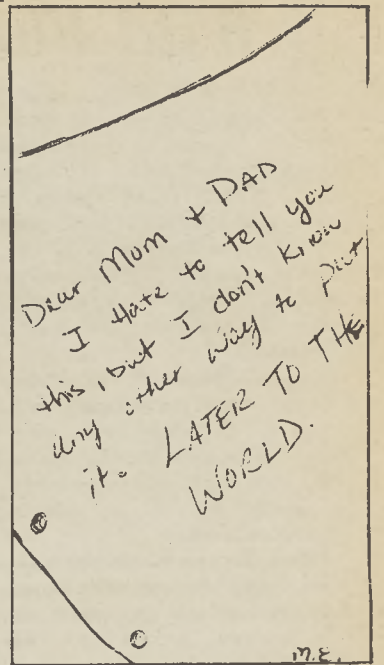 Dear Mom + DAD
I Hate to tell you
this, but I don't know
any other way to put
it. LATER TO THE
WORLD.
M.E.